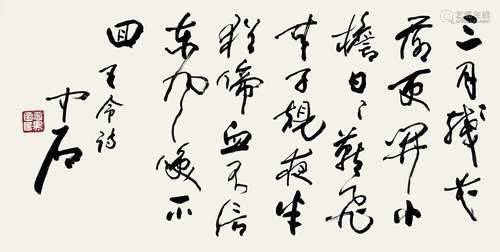 三月殘花
落更開小
檐日々燕飛
來子規夜半
猶啼血不信
東風喚不
回 王令詩
中石